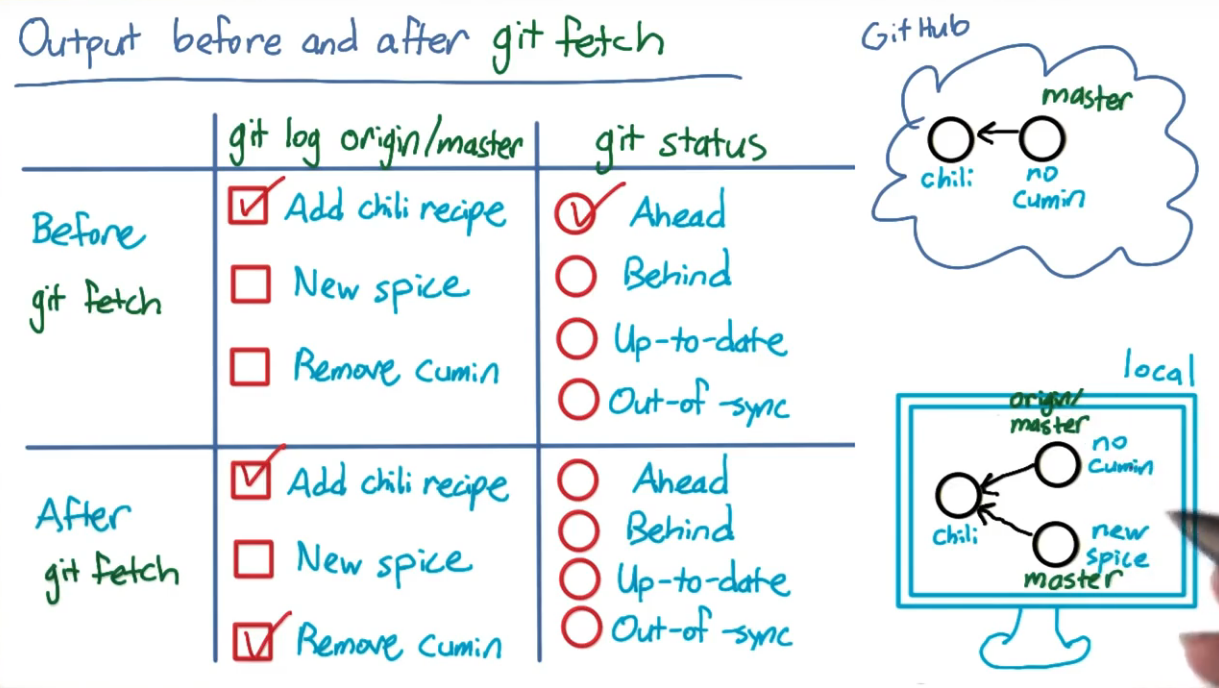 Output before and after git fetch
git log origin/master
git status
Before
git fetch
Add chili recipe
New spice
Remove cumin
Ahead
Behind
Up-to-date
Out-of-sync
After
git fetch
Add chili recipe
New spice
Remove cumin
Ahead
Behind
Up-to-date
Out-of-sync
GitHub
master
chili
no
cumin
local
origin/
master
no
cumin
chili
new
spice
master